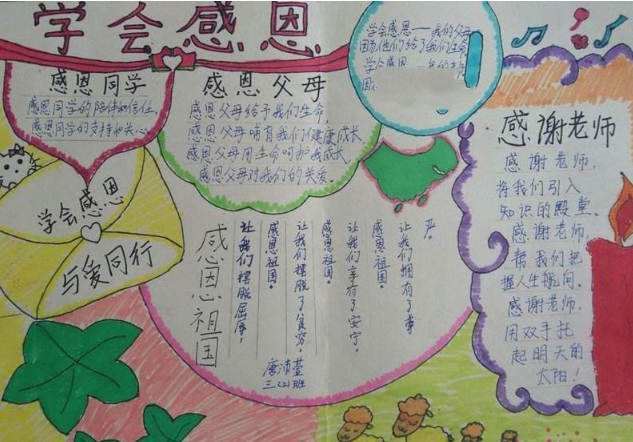 学会感恩
感恩同学
感恩同学的陪伴和信任,
感恩同学的支持和关心。
感恩父母
感恩父母给予我们生命,
感恩父母哺育我们健康成长
感恩父母用生命呵护我成长,
感恩父母对我们的关爱。
学会感恩——我们的父母
因为他们给了我们生命
学会感恩
恩:
感谢老师
感谢老师,
将我们引入
知识的殿堂。
感谢老师,
帮我们把
握人生航向。
感谢老师,
用双手托
起明天的
太阳!
学会感恩
与爱同行
感恩祖国
让我们摆脱屈辱,
感恩祖国。
让我们摆脱了贫穷,
感恩祖国。
让我们享有了安宁,
感恩祖国。
让我们拥有了尊
严。
唐沛萱
三(2)班